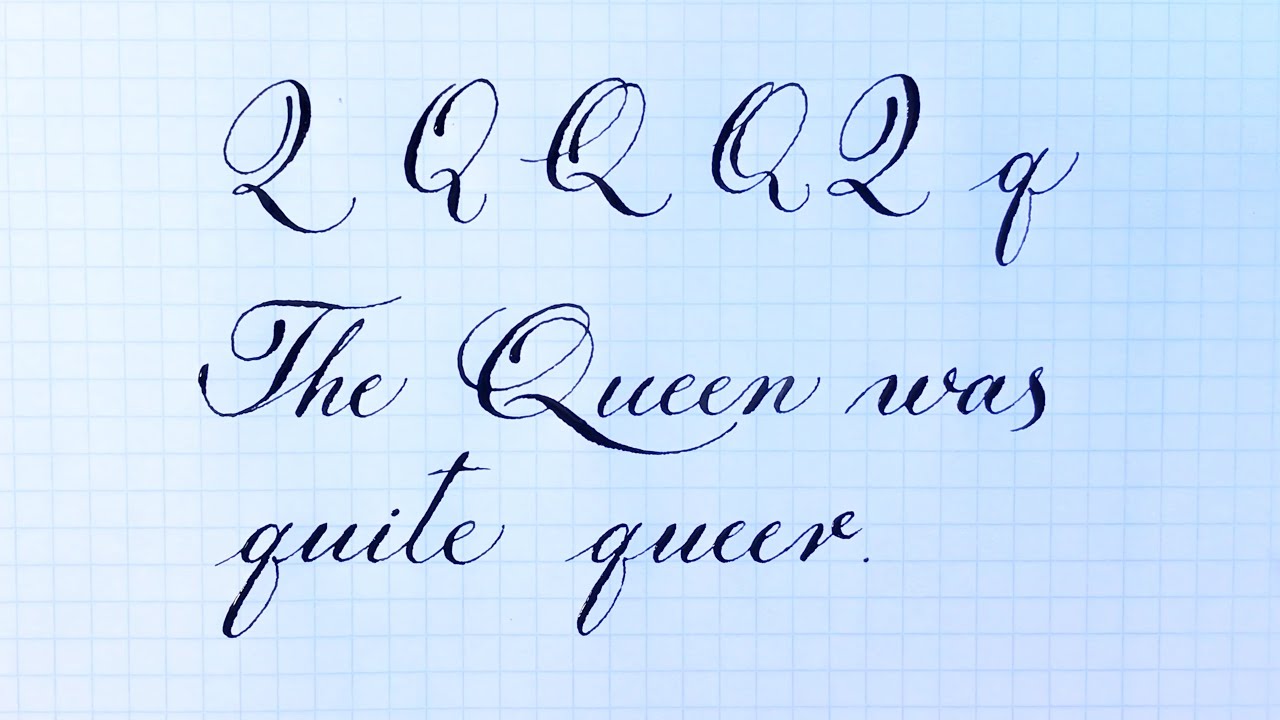 Q Q Q Q Q q
The Queen was
quite queer.